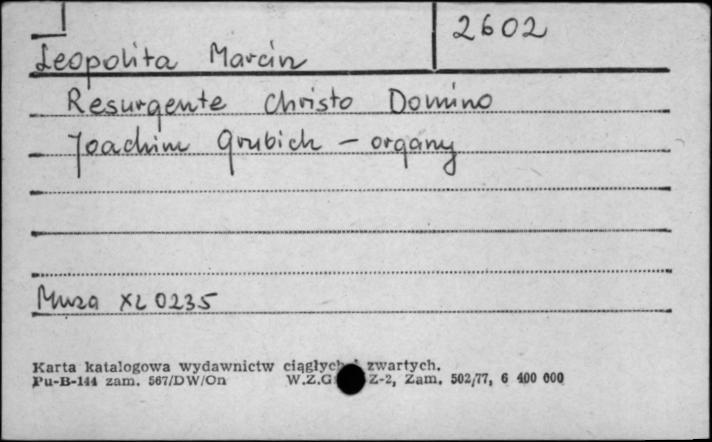 2602
Leopolita Marcin
Resurgente Christo Domino
Joachim Grubich - organy
Muza XL 0235
Karta katalogowa wydawnictw ciągłych i zwartych.
Pu-B-144 zam. 567/DW/On W.Z.G. Z-2, Zam. 502/77, 6 400 000